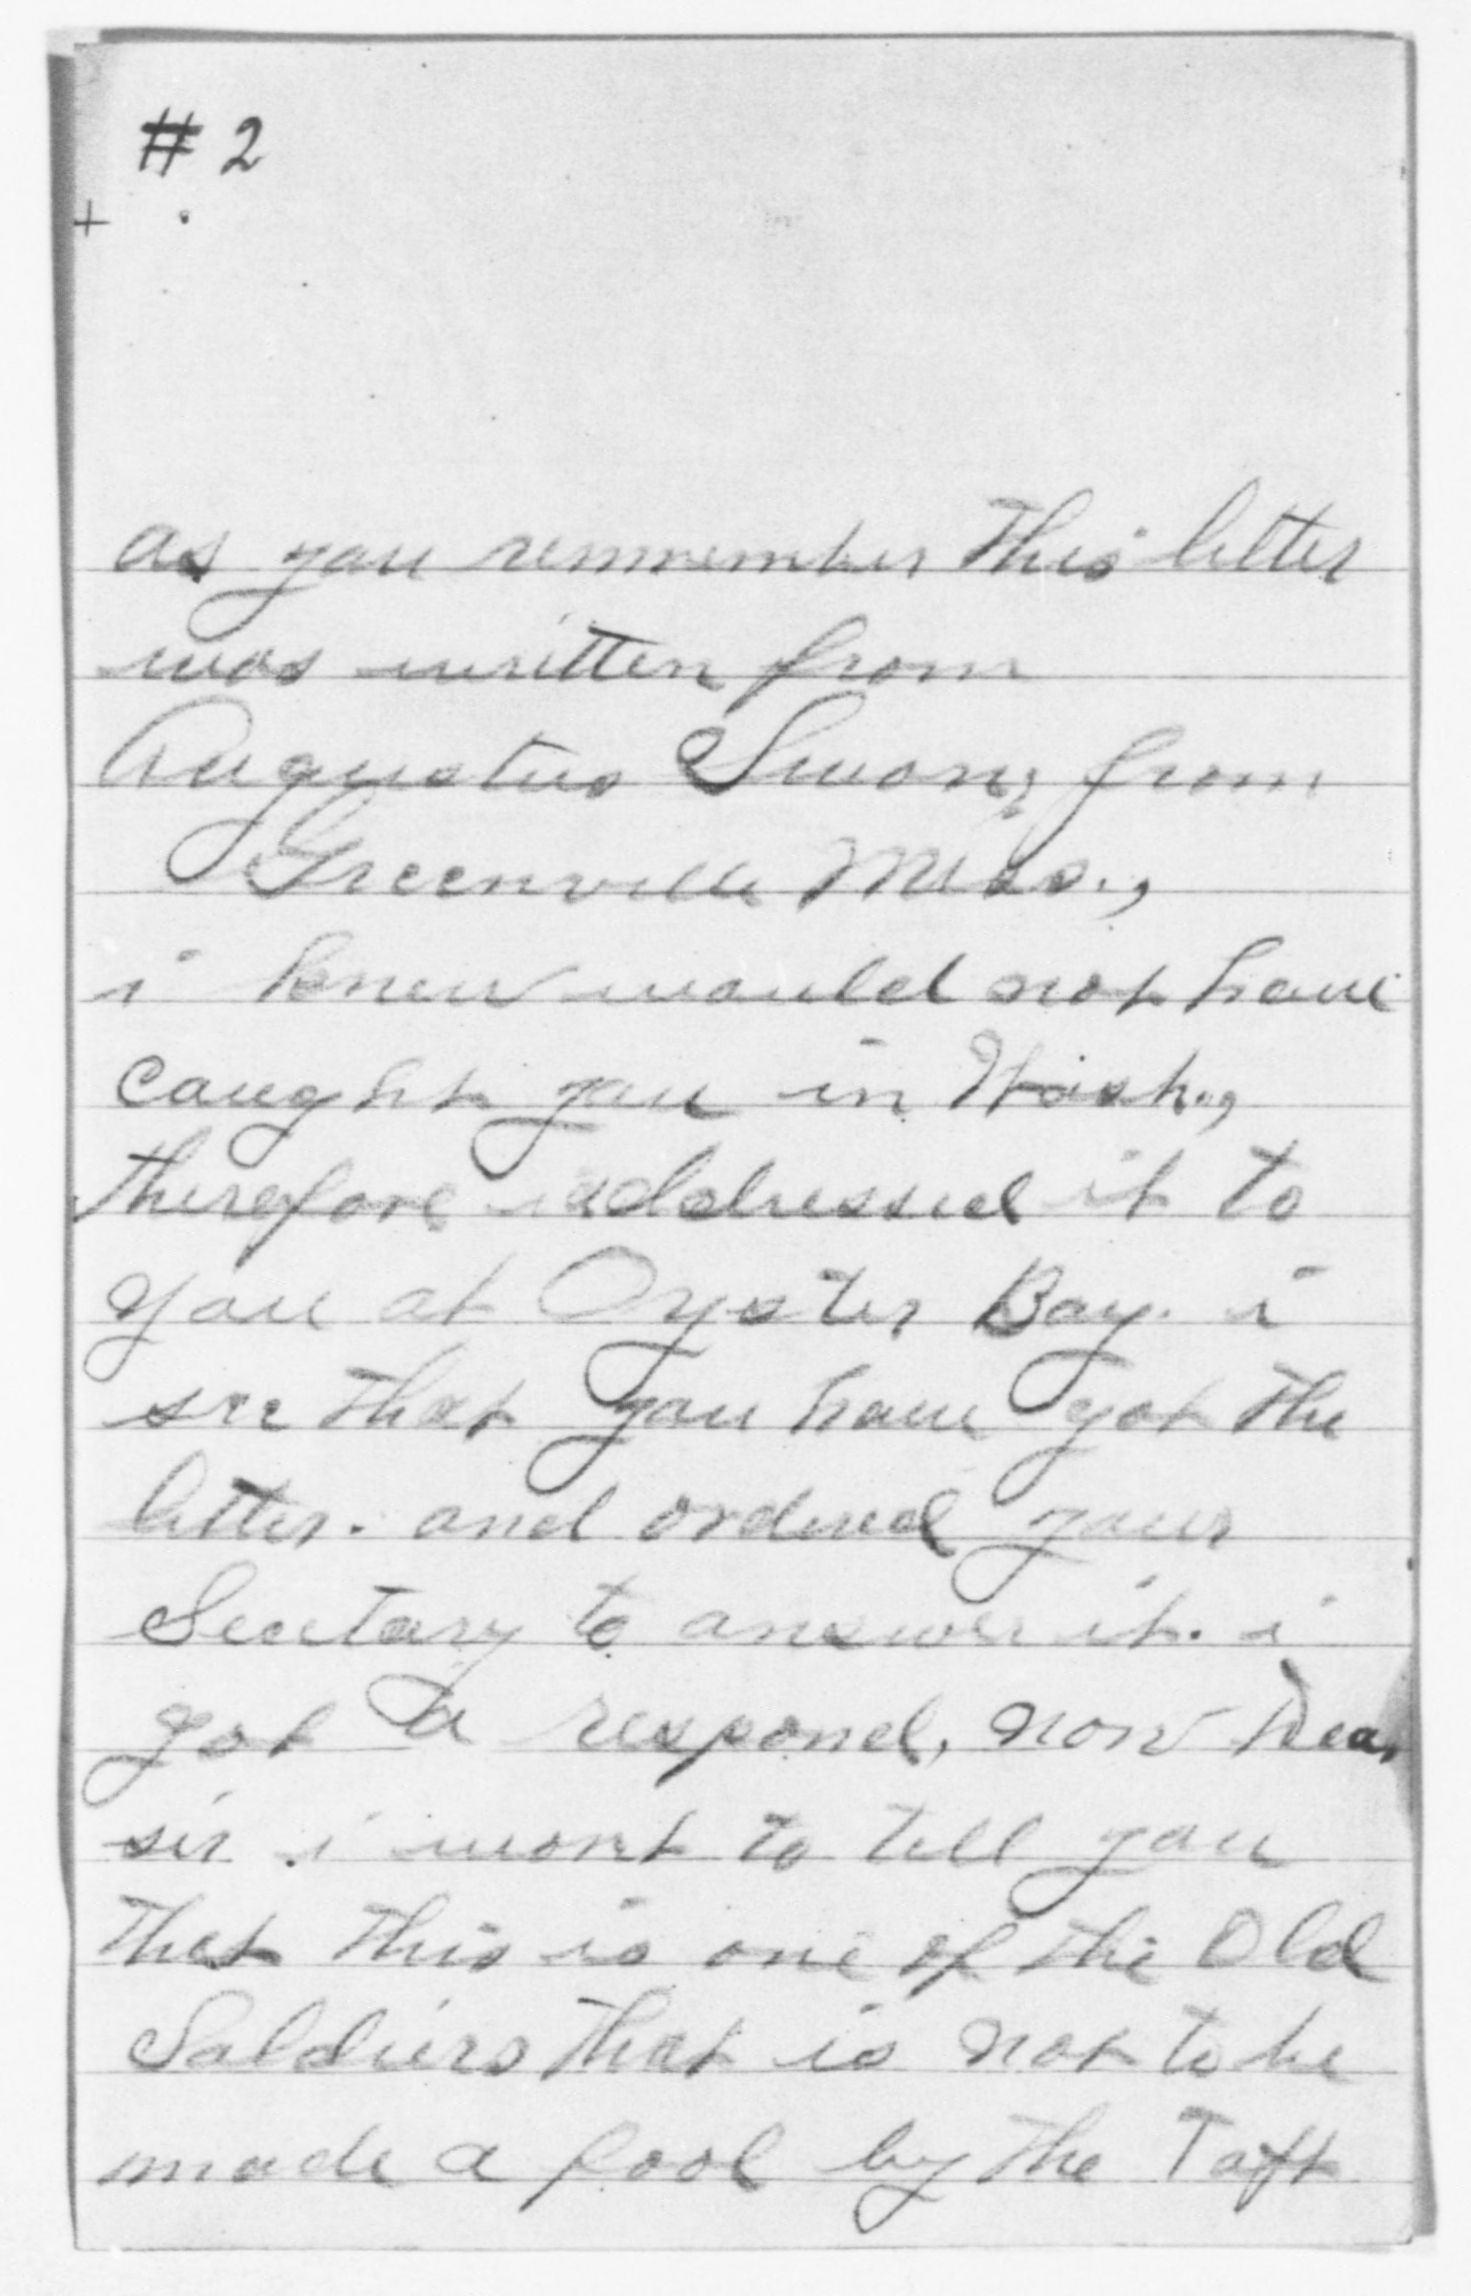 # 2
as you remmember this letter
was written from
Augustus Swong from
Greenville Miss.,
i knew would not have
caught you in Wash.,
therefore i addressed it to
you at Oyster Bay. i
see that you have got the
letter. and ordered your
Secetary to answer it. i
got a respond, now Dear
sir i wont to tell you
that this is one of the Old
Soldiers that is not to be
made a fool by the Taft